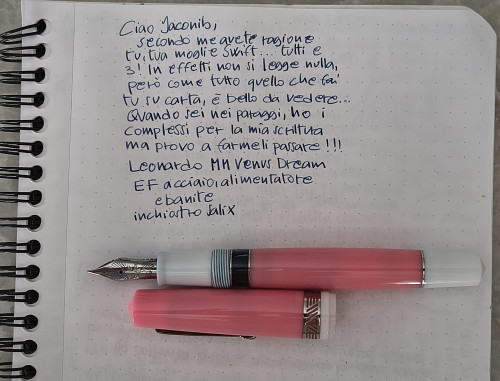 Ciao Jaconib,
secondo me avete ragione
tu, tua moglie Swift... tutti e
3! In effetti non si legge nulla,
però come tutto quello che fai
tu su carta, è bello da vedere...
Quando sei nei paraggi, ho i
complessi per la mia scrittura
ma provo a farmeli passare!!!
Leonardo MM Venus Dream
EF acciaio, alimentatore
ebanite
inchiostro Salix